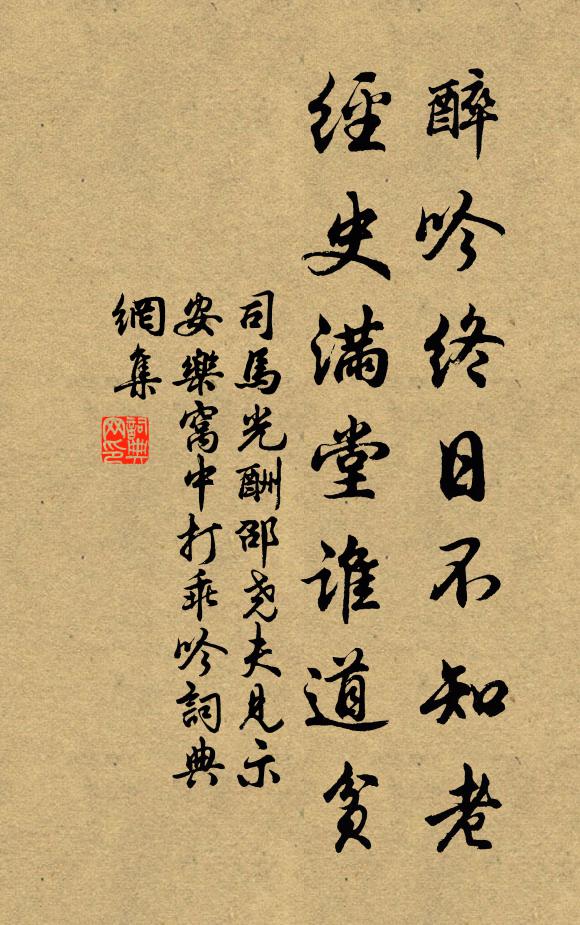 醉吟終日不知老
經史滿堂誰道貧
司馬光酬邵堯夫見示
安樂窩中打乖吟詞典
網集
詞典網印